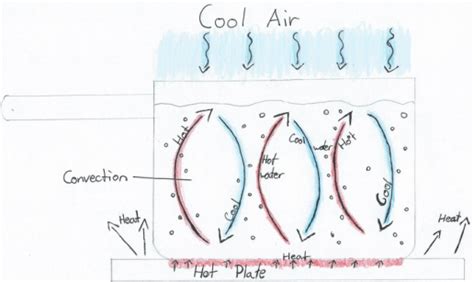 Cool Air
Hot
Cool
Hot
water
Cool
water
Hot
Cool
Convection
Heat
Heat
Heat
Hot Plate